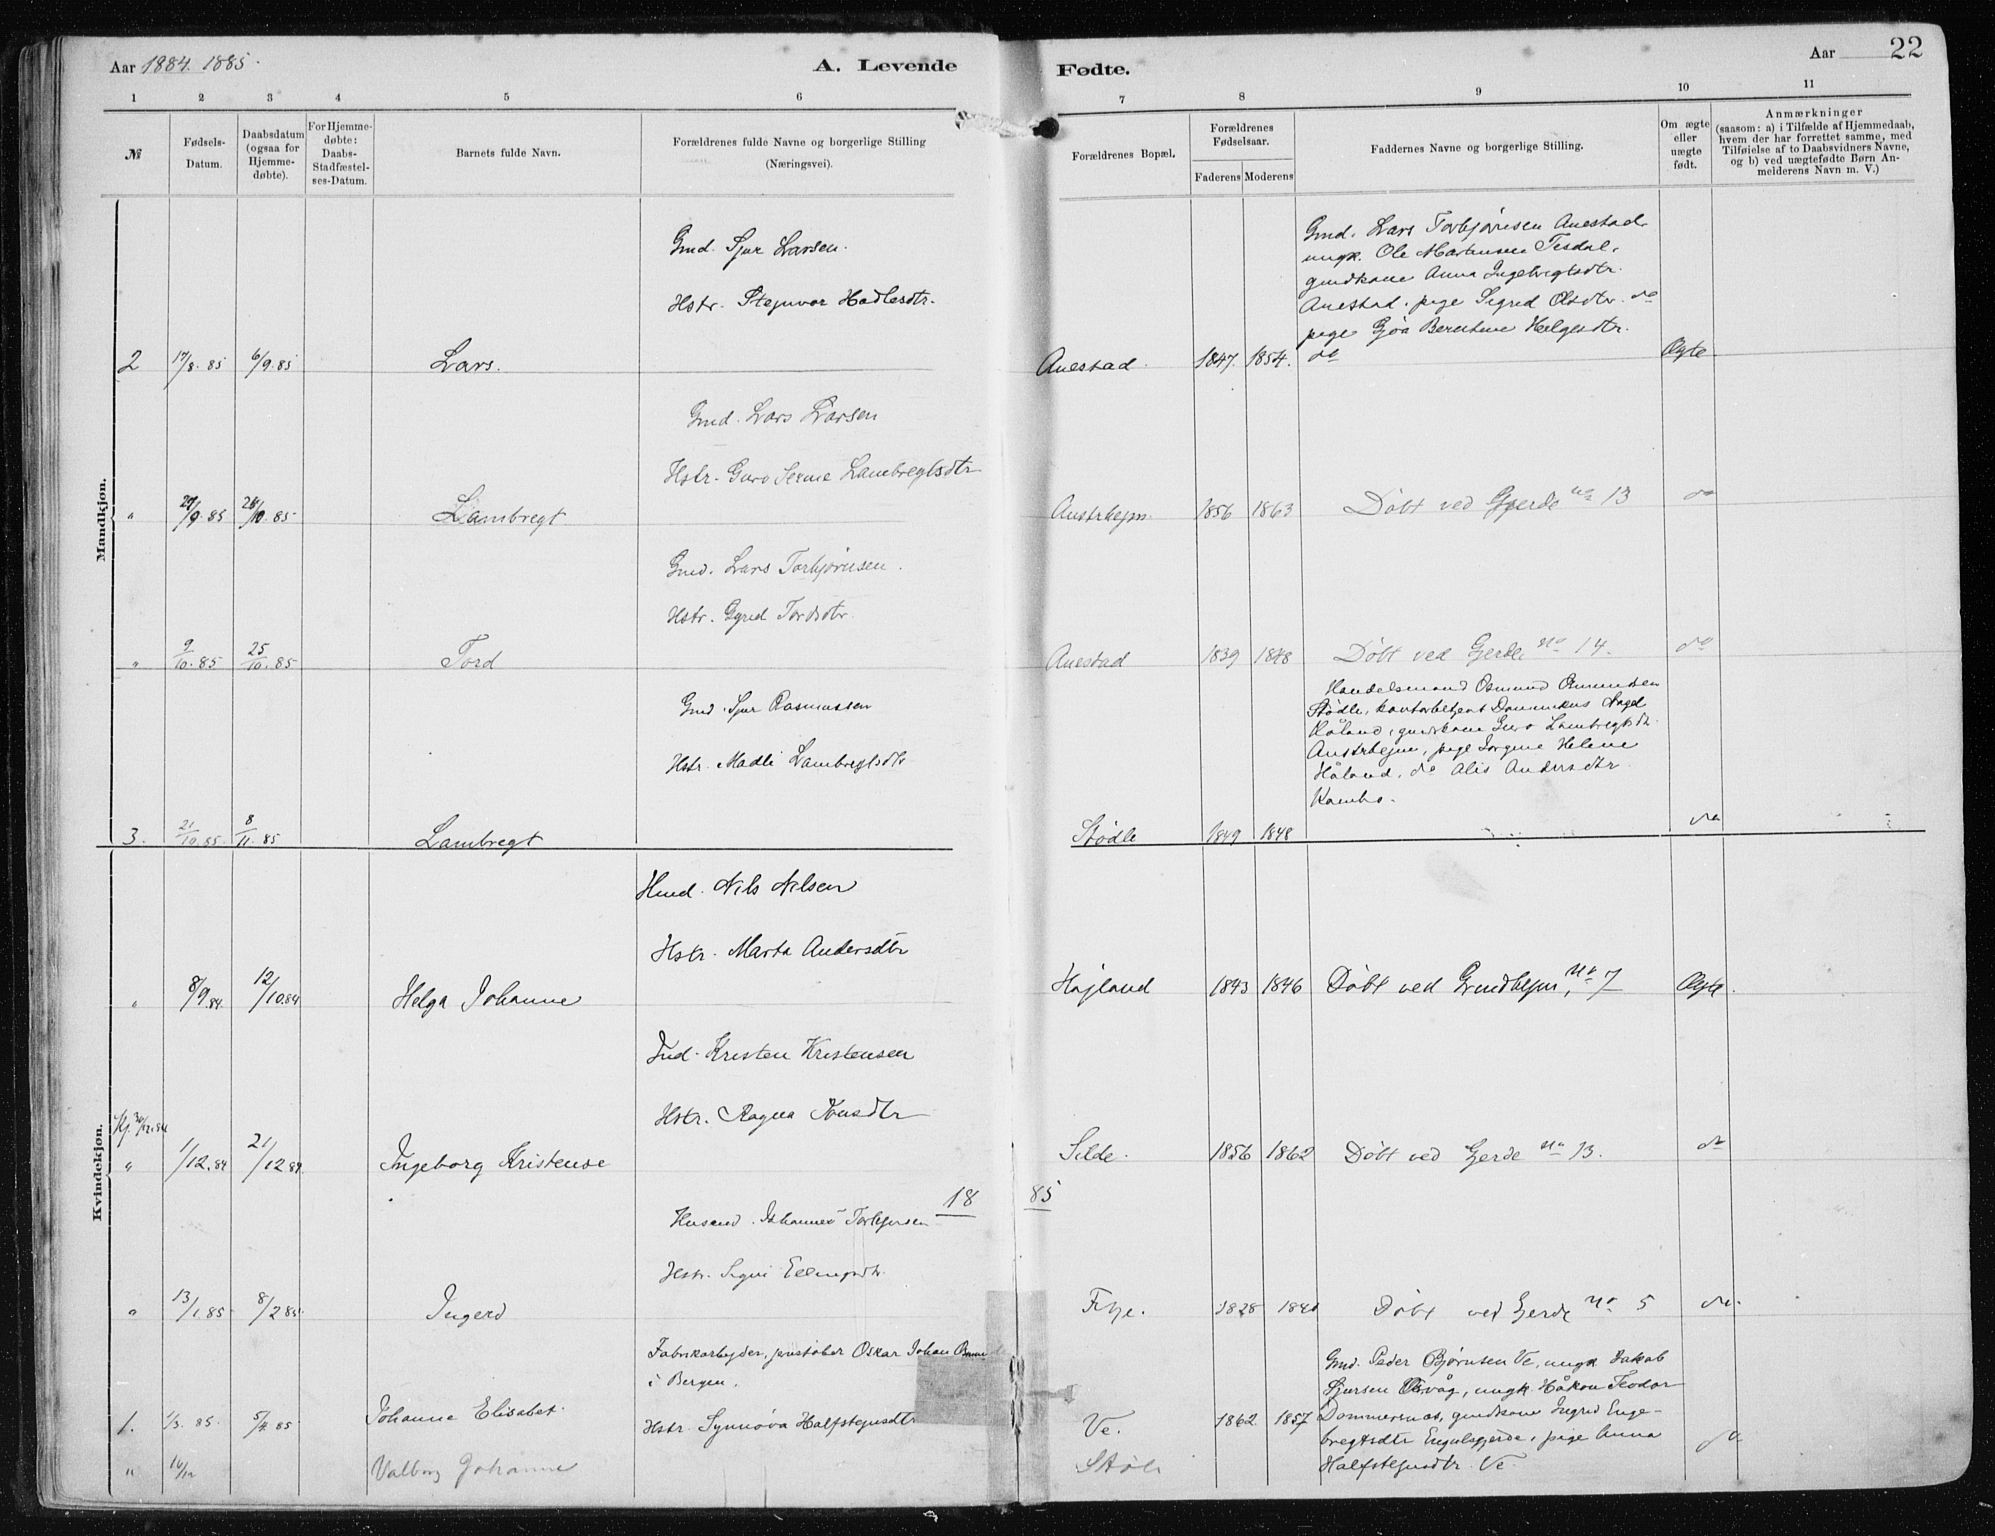 Aar 1884. 1885.
A. Levende
Fødte.
Aar
22
1 2 3 4 5 6 7 8 9 10 11
№
Fødsels-Datum.
Daabsdatum (ogsaa for Hjemme-døbte).
For Hjemme-døbte: Daabs-Stadfæstel-ses-Datum.
Barnets fulde Navn.
Forældrenes fulde Navne og borgerlige Stilling
(Næringsvei).
Forældrenes Bopæl.
Forældrenes Fødselsaar.
Faderens Moderens
Faddernes Navne og borgerlige Stilling.
Om ægte eller uægte født.
Anmærkninger
(saasom: a) i Tilfælde af Hjemmedaab,
hvem der har forrettet samme, med
Tilføielse af to Daabsvidners Navne,
og b) ved uægtefødte Børn An-
melderens Navn m. V.)
Mandkjøn.
Gmd. Sjur Larsen.
Hstr. Stejnvor Hadlesdtr.
Gmd. Lars Torbjørnsen Anestad
ungk. Ole Martinsen Tesdal,
gmdkone Anna Ingebregtsdtr.
Anestad. pige Sigrid Olsdtr. do
pige Gjøa Berentine Helgesdtr.
do
2 17/8. 85 6/9. 85 Lars. Anestad. 1847. 1854. Ægte
Gmd. Lars Larsen
Hstr. Guro Serine Lambregtsdtr
" 29/9. 85 28/10. 85 Lambregt Austrhejm. 1856 1863 Døbt ved Gjerde No 13 do
Gmd. Lars Torbjørnsen.
Hstr. Gyrid Tordsdtr.
" 9/10. 85 25/10. 85 Tord Anestad 1839 1848 Døbt ved Gjerde No 14. do
Gmd. Sjur Rasmussen
Hstr. Madli Lambregtsdtr
Handelsmand Osmund Omundsen
Stødle, kontorbetjent Dominikus Nagel
Håland, gmdkone Guro Lambregtsdtr.
Austrhejm, pige Jorgine Helene
Håland, do Alis Andersdtr
Kambo.
3. 21/10. 85. 8/11. 85 Lambregt Stødle 1849 1848 do
Kvindekjøn.
Hmd. Nils Nilsen
Hstr. Marta Andersdtr
" 8/9. 84 12/10. 84 Helga Johanne Højland 1843 1846 Døbt ved Grindhejm, No 7 Ægte.
Ind. Kristen Kristensen
Hstr. Ragna Jonsdtr
Kj. 30/12. 84
" 1/12. 84 21/12 84 Ingeborg Kristense Silde. 1856 1862 Døbt ved Gjerde No 13. do
18 85
Husmd. Johannes Torbjørnsen
Hstr. Signi Ellingsdtr.
" 13/1. 85 8/2 85. Ingerd Fitje. 1828 1840 Døbt ved Gjerde No 5 do.
Fabrikarbejder, Oskar Johan
i Bergen.
Hstr. Synnøva Halfstejnsdtr
Gmd. Peder Bjørnsen Ve, ungk Jakob
Sjursen Osvåg, ungk. Håkon Teodor
Dommersnæs, gmdkone Ingrid Enge-
bregtsdtr Engelsgjerde, pige Anna
Halfstejnsdtr. Ve.
1. 1/3. 85. 5/4. 85 Johanne Elisabet. Ve. 1862. 1857 do
" 14/12 Valborg Johanne Støle